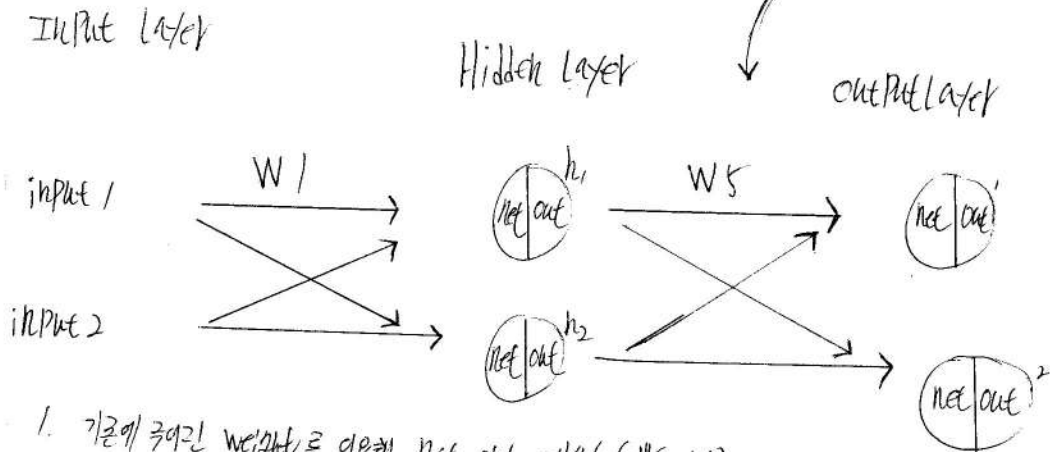 Input layer
Hidden layer
output layer
input 1
W1
net out h1
W5
net out 1
input 2
net out h2
net out 2
1. 기존에 주어진 weight를 이용해 net